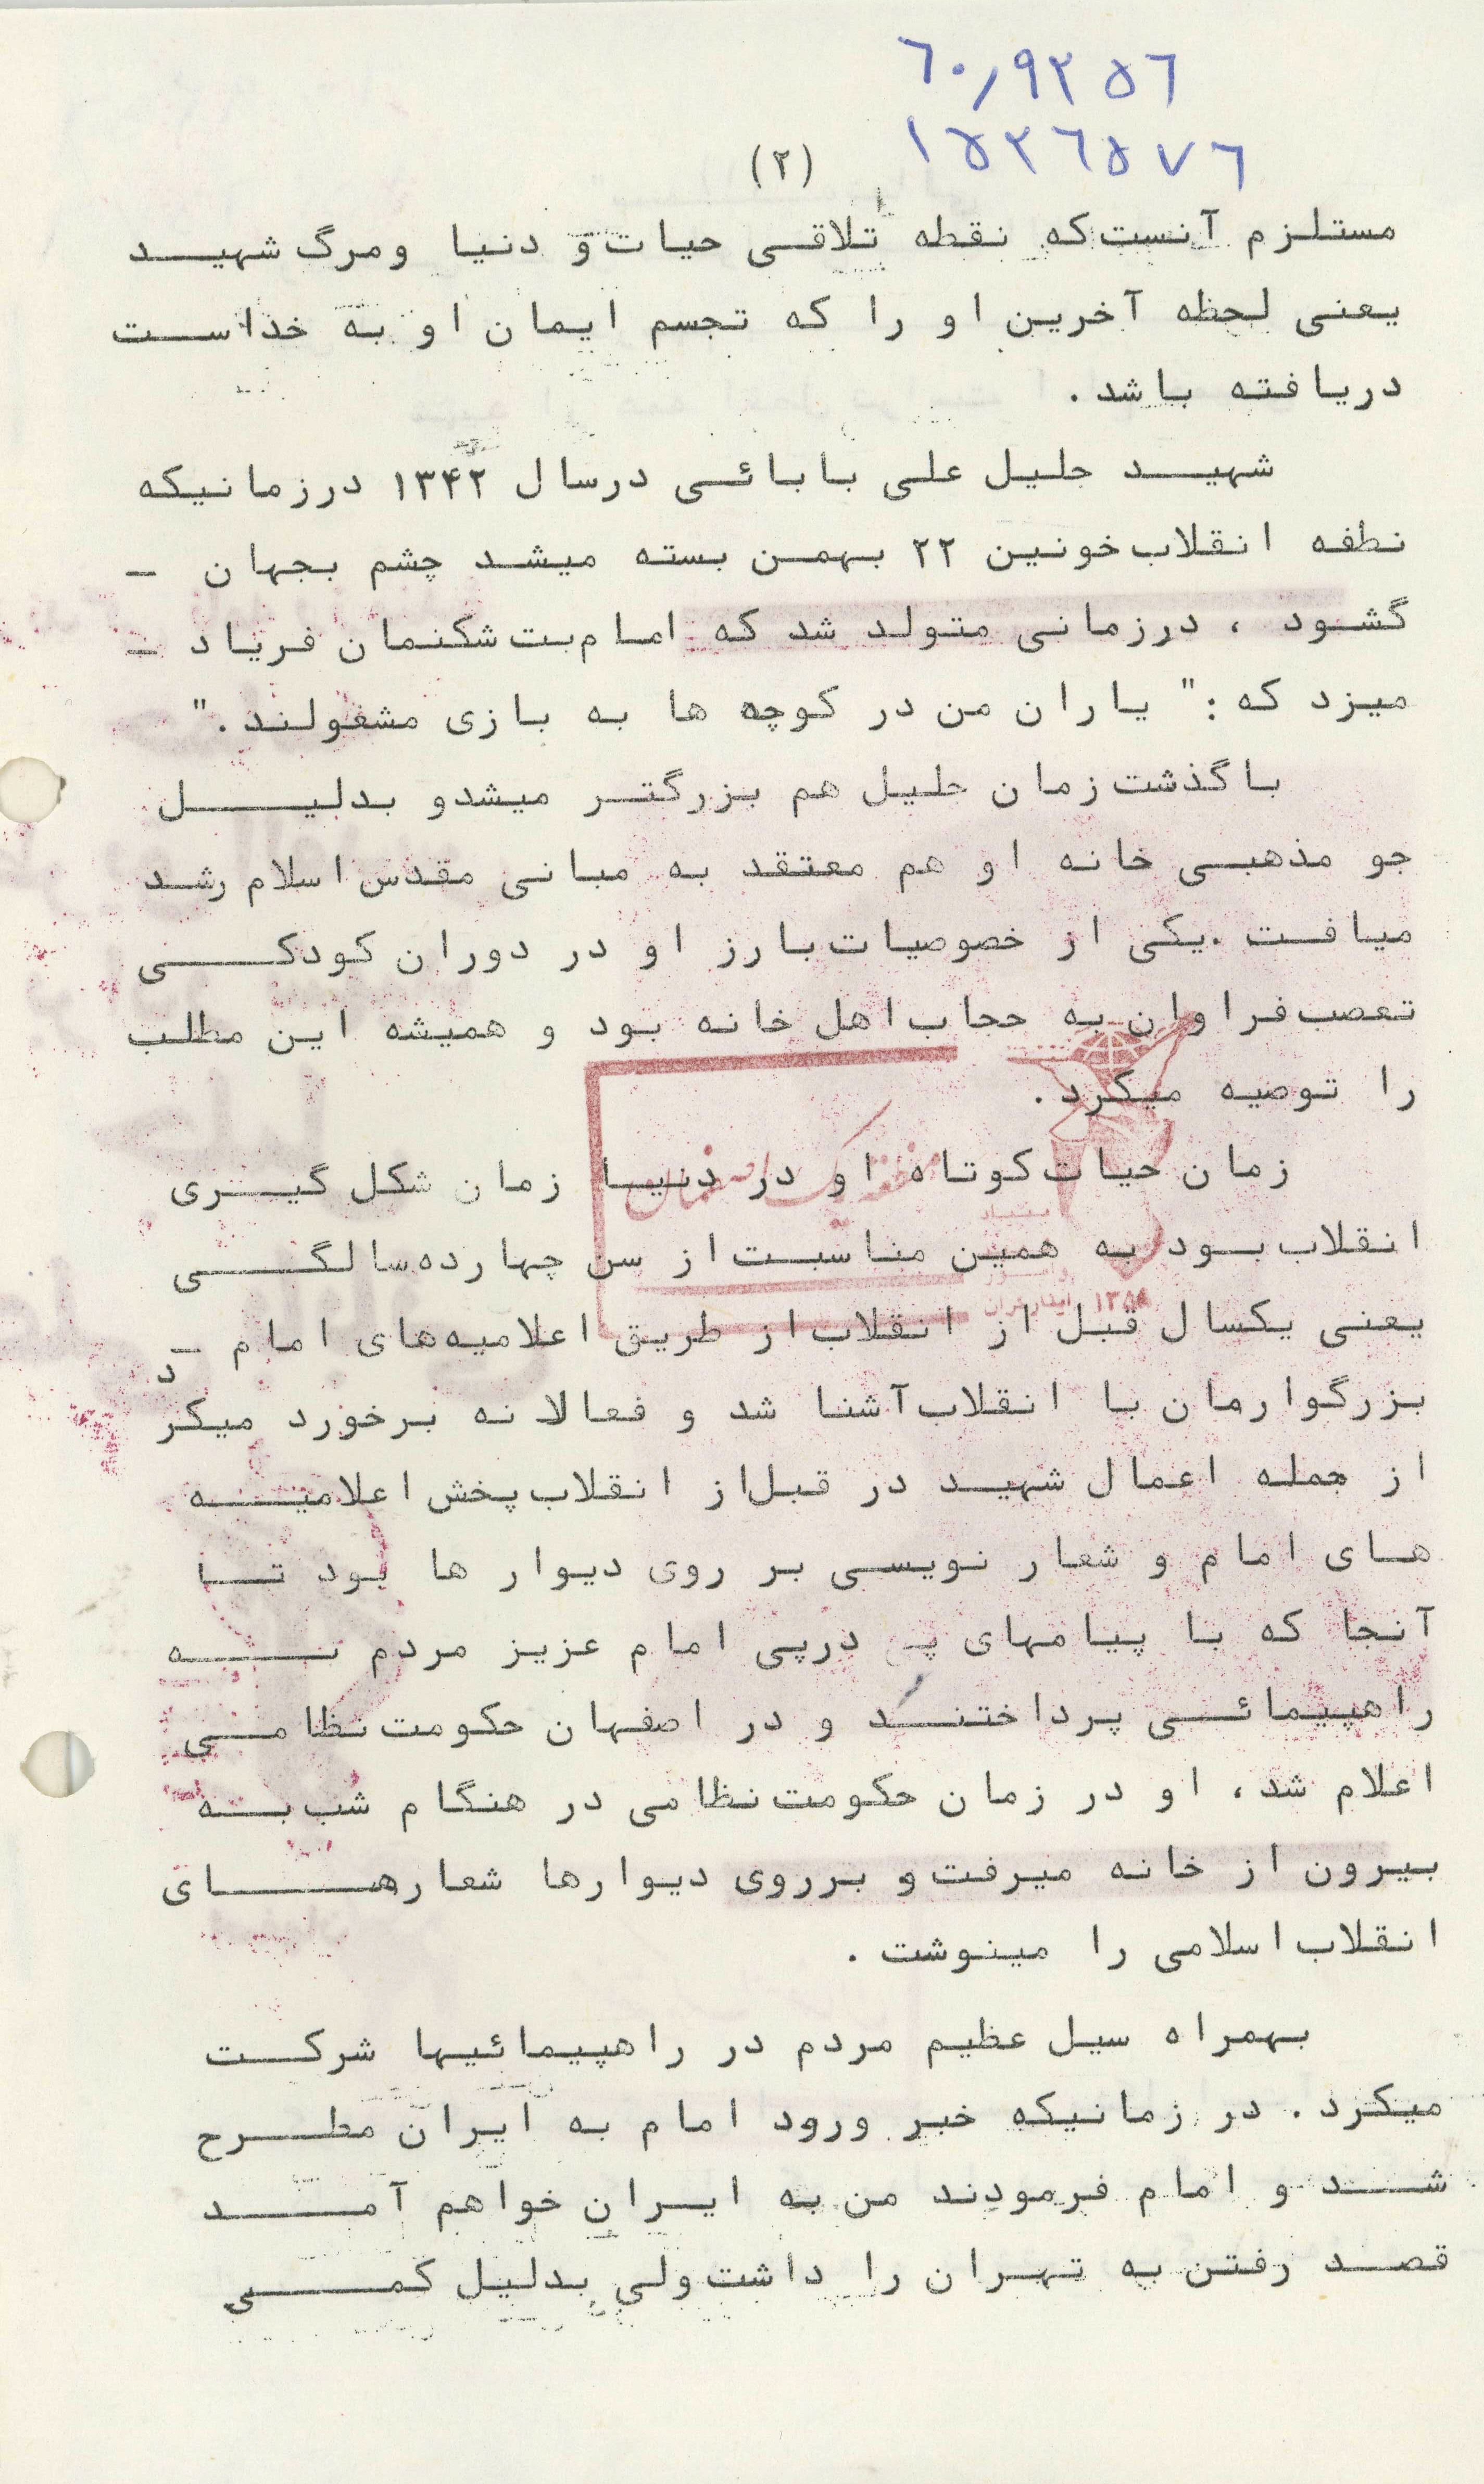 ٦٠٫٩٢٥٦
١٥٢٦٥٧٦
(۲)
مستلزم آنست که نقطه تلاقی حیات و دنیا و مرگ شهید
یعنی لحظه آخرین او را که تجسم ایمان او به خداست
دریافته باشد.
شهید جلیل علی بابائی درسال ۱۳۴۲ درزمانیکه
نطفه انقلاب خونین ۲۲ بهمن بسته میشد چشم بجهان -
گشود ، درزمانی متولد شد که امام بت شکنمان فریاد -
میزد که : " یاران من در کوچه ها به بازی مشغولند ."
با گذشت زمان جلیل هم بزرگتر میشدو بدلیل
جو مذهبی خانه او هم معتقد به مبانی مقدس اسلام رشد
میافت .یکی از خصوصیات بارز او در دوران کودکی
تعصب فراوان به حجاب اهل خانه بود و همیشه این مطلب
را توصیه میکرد.
زمان حیات کوتاه او در دنیا زمان شکل گیری
انقلاب بود به همین مناسبت از سن چهارده سالگی
یعنی یکسال قبل از انقلاب از طریق اعلامیه های امام -
بزرگوارمان با انقلاب آشنا شد و فعالانه برخورد میکرد
از جمله اعمال شهید در قبل از انقلاب پخش اعلامیه
های امام و شعار نویسی بر روی دیوار ها بود تا
آنجا که با پیامهای پی درپی امام عزیز مردم به
راهپیمائی پرداختند و در اصفهان حکومت نظامی
اعلام شد، او در زمان حکومت نظامی در هنگام شب به
بیرون از خانه میرفت و برروی دیوارها شعارهای
انقلاب اسلامی را مینوشت .
بهمراه سیل عظیم مردم در راهپیمائیها شرکت
میکرد. در زمانیکه خبر ورود امام به ایران مطرح
شد و امام فرمودند من به ایران خواهم آمد
قصد رفتن به تهران را داشت ولی بدلیل کمی